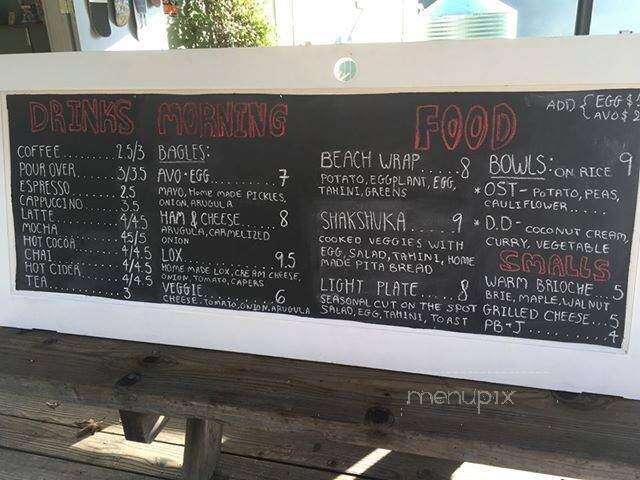 DRINKS
COFFEE..........2.5/3
POUR OVER.........3/3.5
ESPRESSO.........2.5
CAPPUCCINO........3.5
LATTE..........4/4.5
MOCHA..........4/4.5
HOT COCOA.........4.5/5
CHAI..........4/4.5
HOT CIDER........4/4.5
TEA..........3
MORNING
BAGLES:
AVO·EGG........7
MAYO, HOME MADE PICKLES,
ONION, ARUGULA
HAM & CHEESE......8
ARUGULA, CARMELIZED
ONION
LOX........9.5
HOME MADE LOX, CREAM CHEESE,
ONION, TOMATO, CAPERS
VEGGIE........6
CHEESE·TOMATO, ONION, ARUGULA
FOOD
ADD { EGG
AVO $2
BEACH WRAP......8
POTATO, EGGPLANT, EGG,
TAHINI, GREENS
SHAKSHUKA......9
COOKED VEGGIES WITH
EGG, SALAD, TAHINI, HOME
MADE PITA BREAD
LIGHT PLATE......8
SEASONAL CUT ON THE SPOT
SALAD, EGG, TAHINI, TOAST
BOWLS: ON RICE 9
* OST- POTATO, PEAS,
CAULIFLOWER......
* D.D- COCONUT CREAM,
CURRY, VEGETABLE
SMALLS
WARM BRIOCHE...5
BRIE, MAPLE, WALNUT
GRILLED CHEESE...5
PB+J..........4
menupix